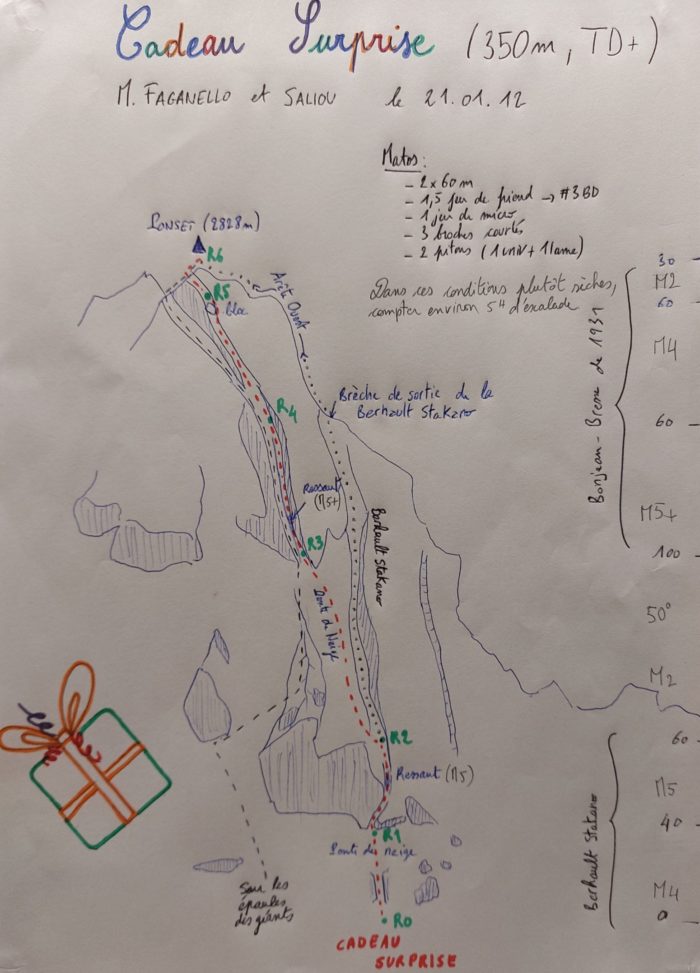 Cadeau Surprise (350m, TD+)
M. FAGANELLO et SALIOU le 21.01.12
Matos:
- 2x60m
- 1,5 jeu de friend → #3BD
- 1 jeu de micro
- 3 broches courtes
- 2 pitons (1 univ + 1 lame)
Dans ces conditions plutôt sèches,
compter environ 5H d'escalade
SONSET (2828m)
R6
R5
Bloc
Arête Ouest
Brèche de sortie de la
Berhault Stakano
R4
Ressaut
(M5+)
R3
Berhault Stakano
Pente de Neige
R2
Ressaut (M5)
R1
Pente de neige
R0
CADEAU
SURPRISE
Sur les
épaules
des géants
30
M2
60
M4
60
M5+
100
50°
M2
60
M5
40
M4
0
Bonjean - Breme de 1931
Berhault Stakano